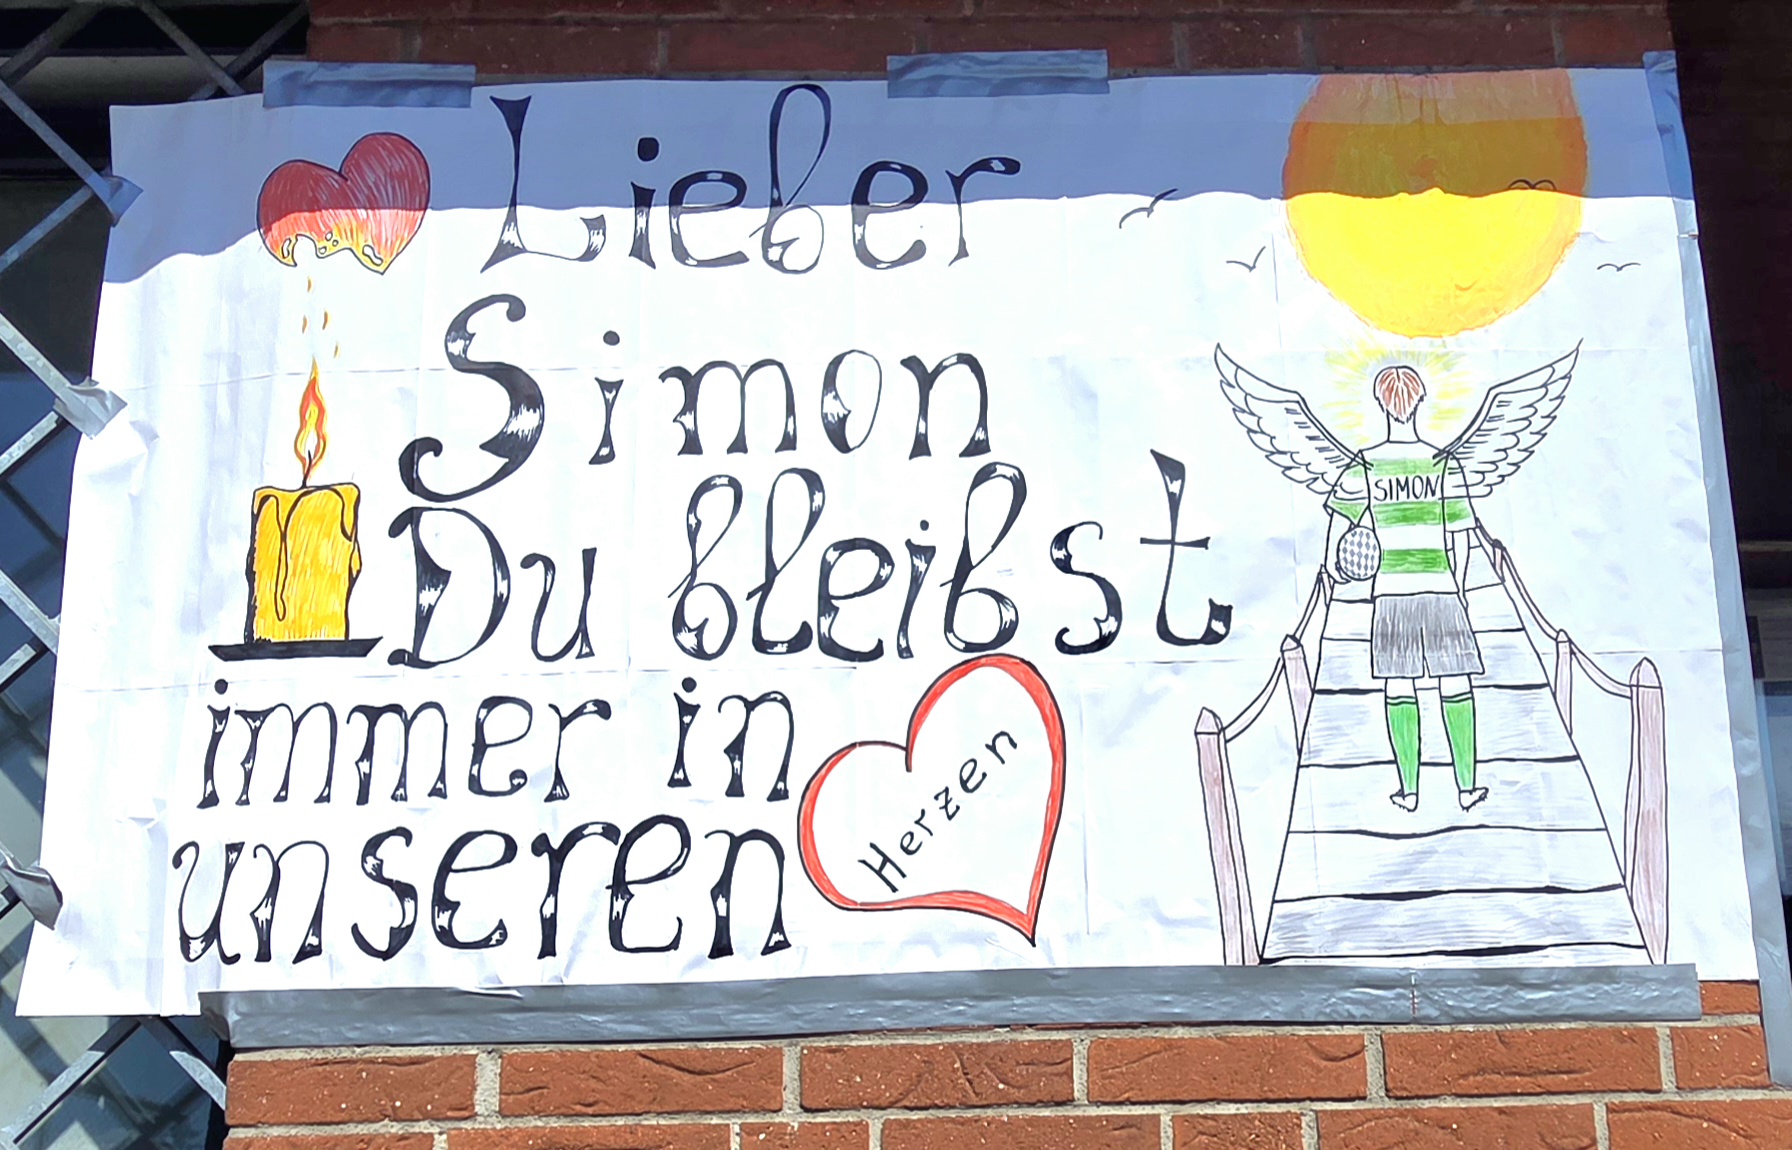 Lieber
Simon
Du bleibst
immer in
unseren
Herzen
SIMON